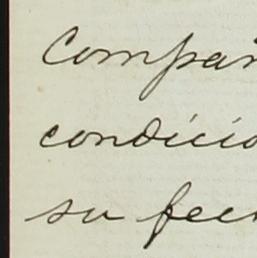 Compañ
condicio
su fech